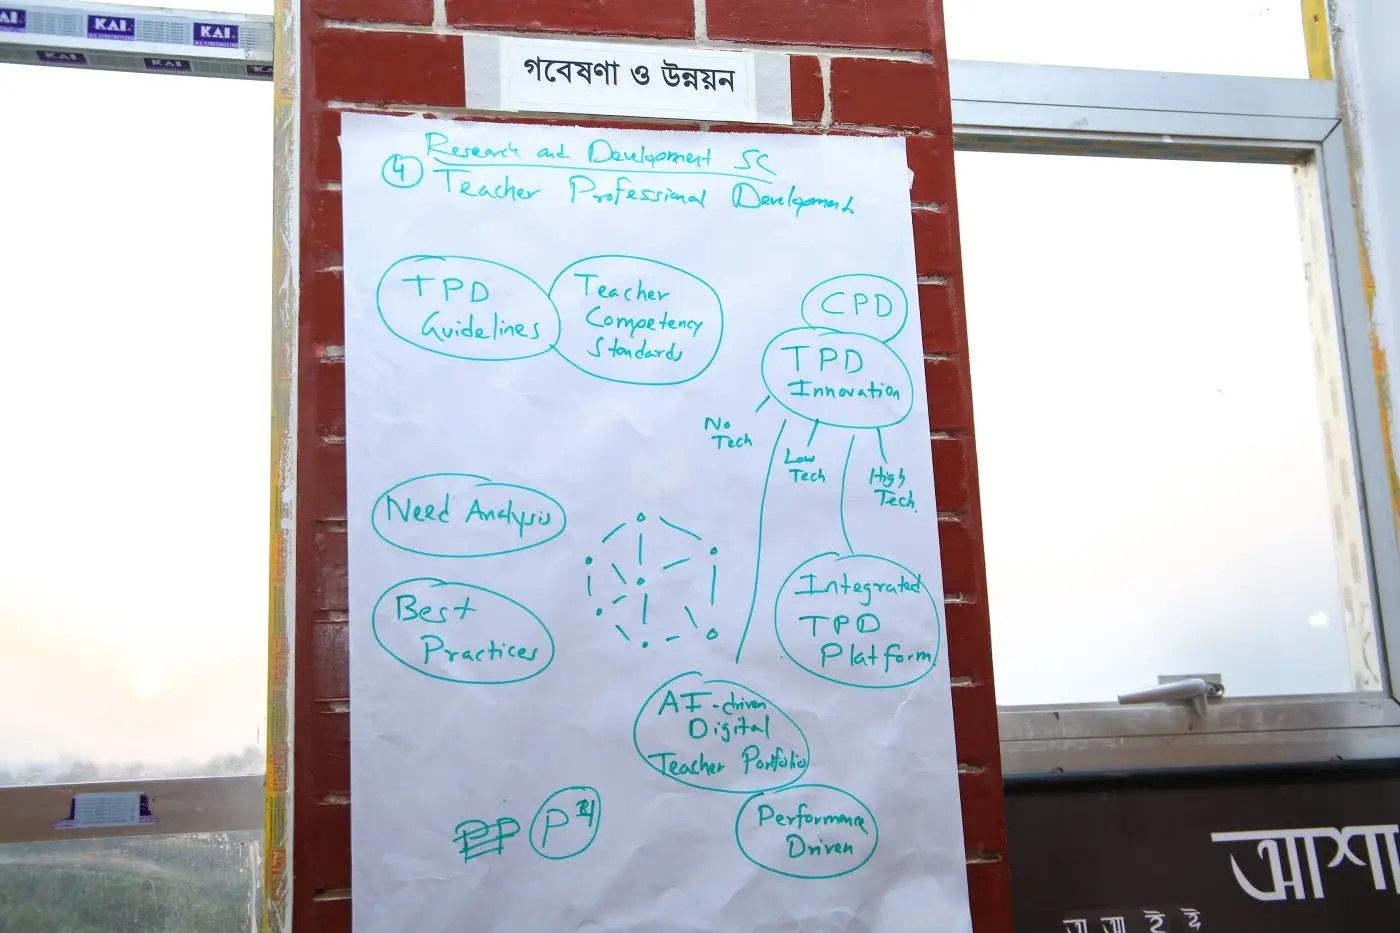 KAI
KAI
ALUMINIUM
KAI
ALUMINIUM
KAI
KAI
KAI
গবেষণা ও উন্নয়ন
Research and Development SC
4 Teacher Professional Development
TPD
Guidelines
Teacher
Competency
Standards
CPD
TPD
Innovation
No
Tech
Low
Tech
High
Tech.
Need Analysis
Best
Practices
Integrated
TPD
Platform
AI-driven
Digital
Teacher Portfolio
Performance
Driven
PP
P
আশা
অ আ ই ঈ